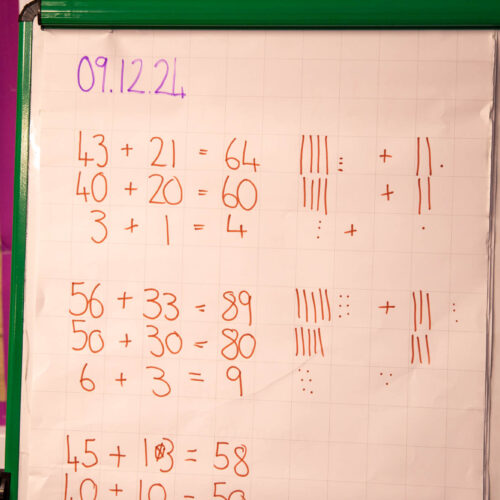 09.12.24
43 + 21 = 64
40 + 20 = 60
3 + 1 = 4
56 + 33 = 89
50 + 30 = 80
6 + 3 = 9
45 + 13 = 58
40 + 10 = 50